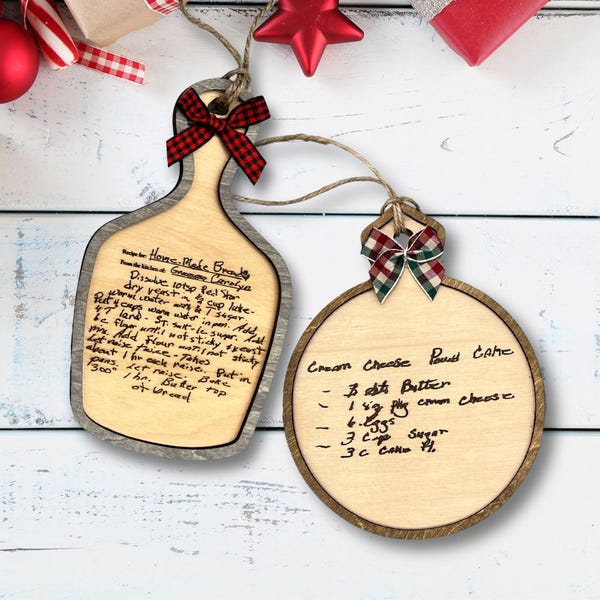 Recipe for: Home-Made Bread
From the kitchen of: Grandma Carolyn
Dissolve 10tsp Red Star
dry yeast in ½ cup luke-
warm water and 1 T sugar.
Put 4 cups warm water in pan. Add
¼ T lard. 5T salt. 1c sugar. Add
flour until not sticky
min. Add flour until not sticky
Let raise twice. Takes
about 1 hr each raise. Put in
pans. Let raise. Bake
300° 1 hr. Butter top
of bread
Cream Cheese Pound Cake
- 3 sts Butter
- 1 8oz pkg cream cheese
- 6 Eggs
- 3 Cup Sugar
- 3 c Cake fl.